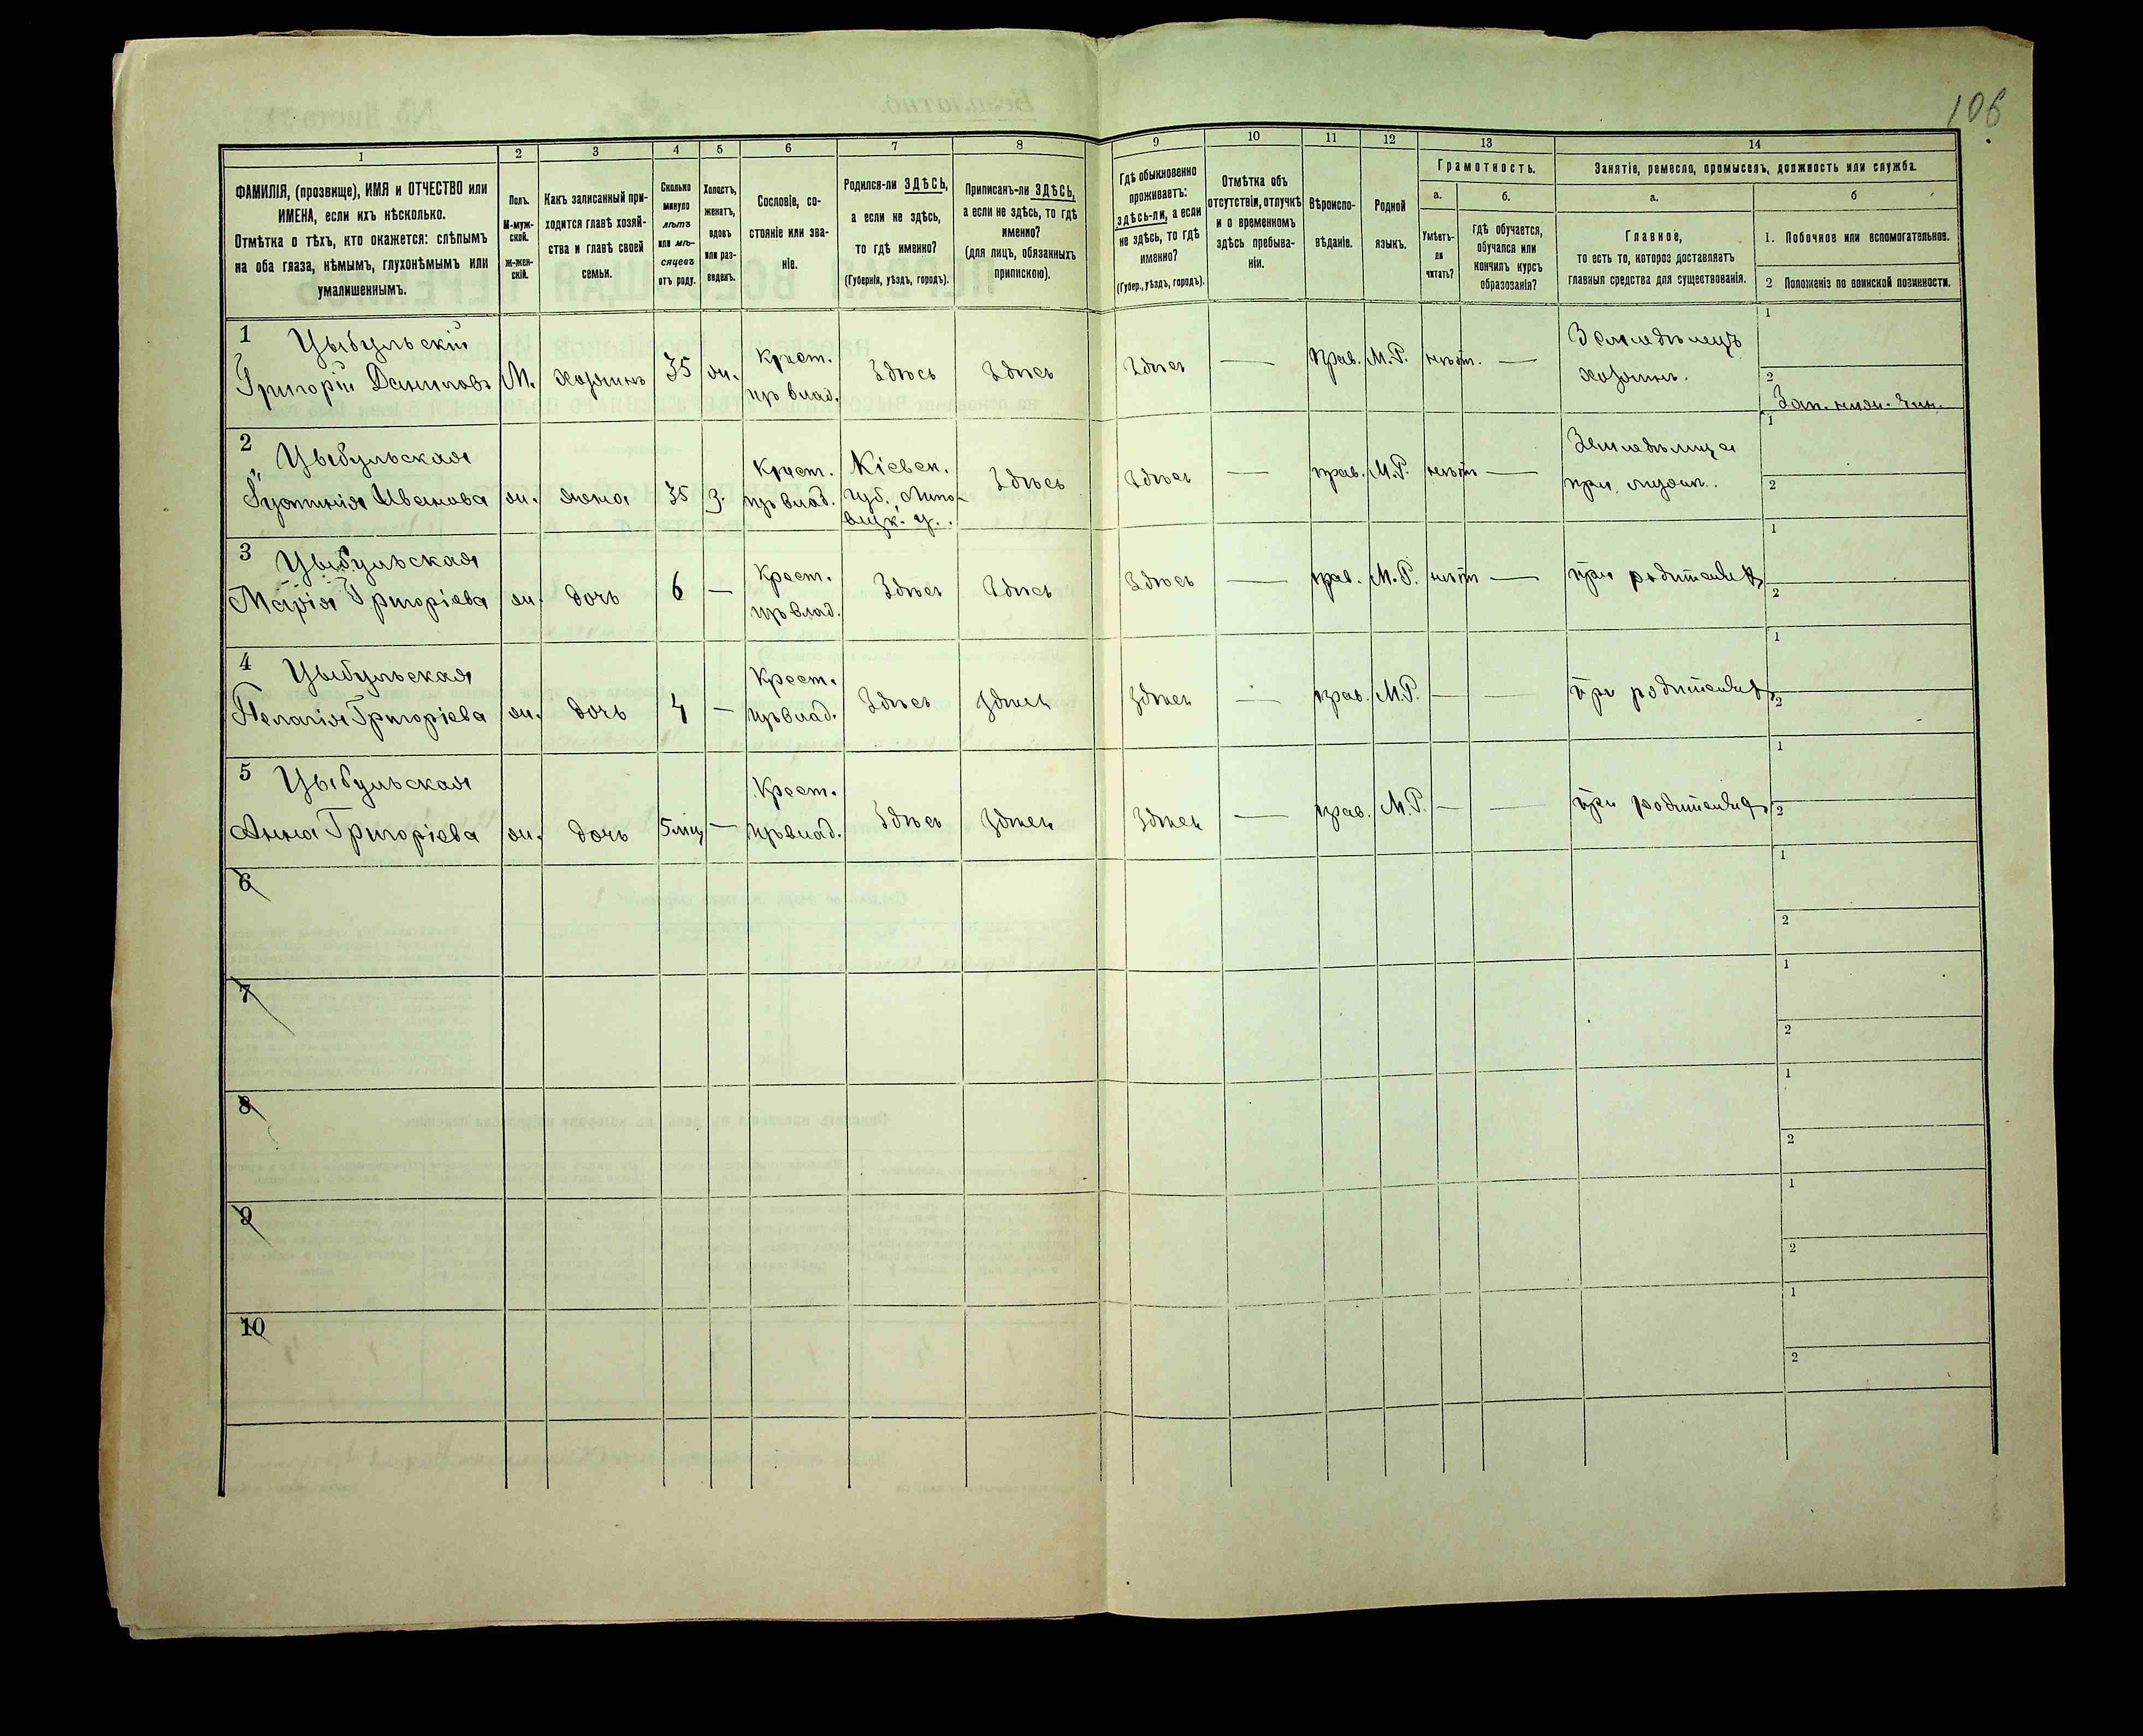 106
1
2
3
4
5
6
7
8
9
10
11
12
13
14
ФАМИЛІЯ, (прозвище), ИМЯ и ОТЧЕСТВО или
ИМЕНА, если ихъ нѣсколько.
Отмѣтка о тѣхъ, кто окажется: слѣпымъ
на оба глаза, нѣмымъ, глухонѣмымъ или
умалишеннымъ.
Полъ.
М-муж-
ской.
ж-жен-
скій.
Какъ записанный при-
ходится главѣ хозяй-
ства и главѣ своей
семьи.
Сколько
минуло
лѣтъ
или мѣ-
сяцевъ
отъ роду.
Холостъ,
женатъ,
вдовъ
или раз-
веденъ.
Сословіе, со-
стояніе или зва-
ніе.
Родился-ли ЗДѢСЬ,
а если не здѣсь,
то гдѣ именно?
(Губернія, уѣздъ, городъ).
Приписанъ-ли ЗДѢСЬ,
а если не здѣсь, то гдѣ
именно?
(для лицъ, обязанныхъ
припискою).
Гдѣ обыкновенно
проживаетъ:
здѣсь-ли, а если
не здѣсь, то гдѣ
именно?
(Губер., уѣздъ, городъ).
Отмѣтка объ
отсутствіи, отлучкѣ
и о временномъ
здѣсь пребыва-
ніи.
Вѣроиспо-
вѣданіе.
Родной
языкъ.
Грамотность.
а.
б.
Умѣетъ-
ли
читать?
гдѣ обучается,
обучался или
кончилъ курсъ
образованія?
Занятіе, ремесло, промыселъ, должность или служба.
а.
б
Главное,
то есть то, которое доставляетъ
главныя средства для существованія.
1. Побочное или вспомогательное.
2 Положеніе по воинской повинности.
1 Цыбульскій
Григорій Даниловъ М. хозяинъ 35 ж. Крест. Здѣсь Здѣсь Здѣсь — Прав. М.Р. нѣтъ. — Земледѣлецъ 1
изъ влад. хозяинъ. 2
Зап. нижн. чин.
2 Цыбульская
Іустинія Иванова ж. жена 35 з. Крест. Кіевск. Здѣсь Здѣсь — прав. М.Р. нѣтъ — Земледѣлица 1
изъ влад. губ. Липо- при 2
вецк. у.
3 Цыбульская
Марія Григоріева ж. дочь 6 — Крест. Здѣсь Здѣсь Здѣсь — прав. М.Р. нѣтъ — при родителяхъ 1
изъ влад. 2
4 Цыбульская
Пелагія Григоріева ж. дочь 4 — Крест. Здѣсь Здѣсь Здѣсь — прав. М.Р. — — при родителяхъ 1
изъ влад. 2
5 Цыбульская
Анна Григоріева ж. дочь 5 мѣс — Крест. Здѣсь Здѣсь Здѣсь — прав. М.Р. — — при родителяхъ 1
изъ влад. 2
6 1
2
7 1
2
8 1
2
9 1
2
10 1
2